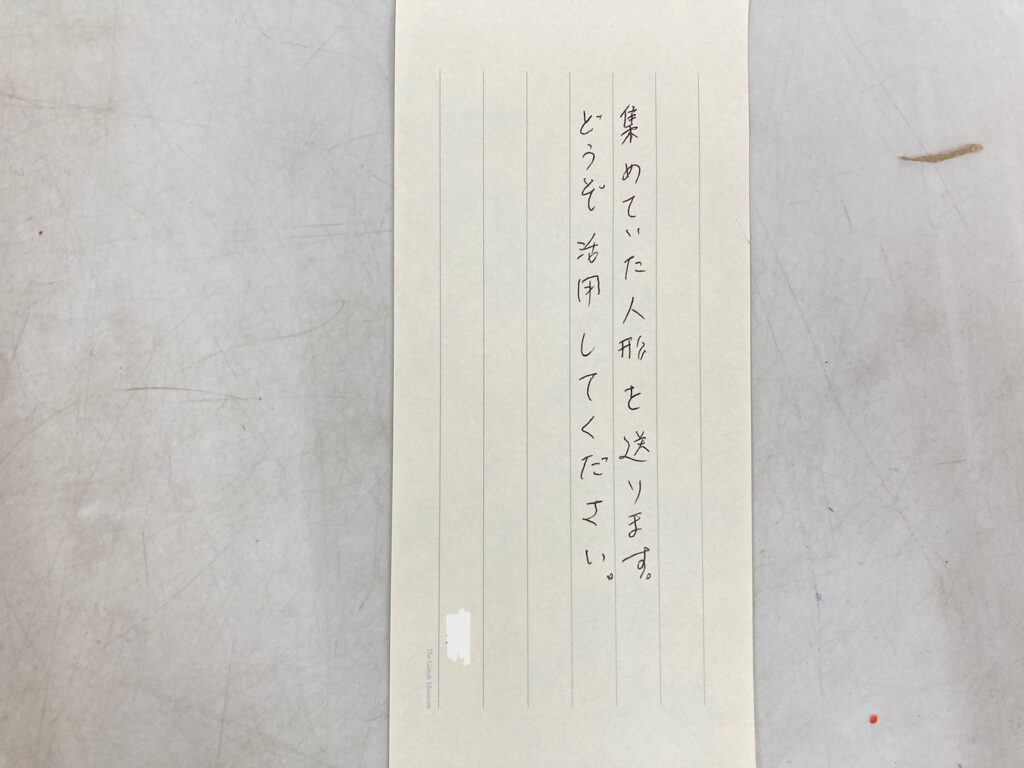 集めていた人形を送ります。
どうぞ活用してください。